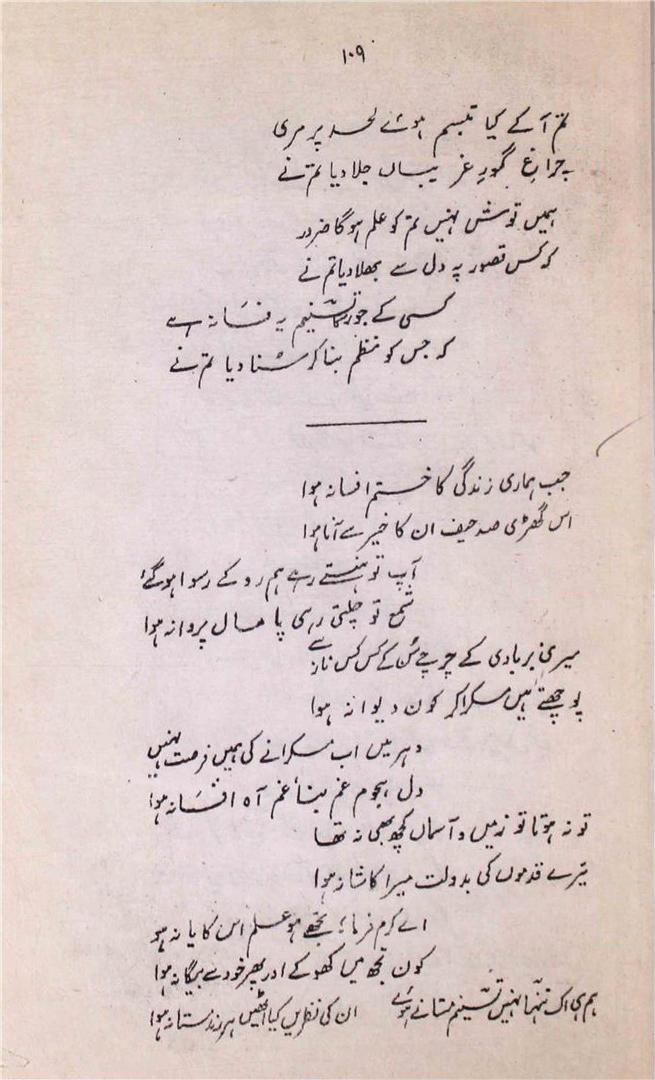 ۱۰۹
تم آ کے کیا تبسم ہوئے لحد پر مری
چراغِ گورِ غریباں جلا دیا تم نے
ہمیں تو ہش نہیں تم کو علم ہوگا ضرور
کہ کس تصور پہ دل سے بھلا دیا تم نے
کسی کے جور کا تسنیم یہ فسانہ ہے
کہ جس کو نظم بنا کر سُنا دیا تم نے
جب ہماری زندگی کا ختم افسانہ ہوا
اس گھڑی صد حیف ان کا خیر سے آنا ہوا
آپ تو ہنستے رہے ہم رو کے رسوا ہوگئے
شمع تو جلتی رہی پامال پروانہ ہوا
میری بربادی کے چرچے سُن کے کس کس ناز سے
پوچھتے ہیں مسکرا کر کون دیوانہ ہوا
دہر میں اب مسکرانے کی ہمیں فرصت نہیں
دل ہجوم غم بنا غم آہ افسانہ ہوا
تو نہ ہوتا تو زمیں و آسماں کچھ بھی نہ تھا
تیرے قدموں کی بدولت میرا کاشانہ ہوا
اے کرم فرما! تجھے ہو علم اس کا یا نہ ہو
کون تجھ میں کھو کے اور پھر خود سے بیگانہ ہوا
ہم ہی اک تنہا نہیں تسنیم مستانے ہوئے
ان کی نظریں کیا اٹھیں ہر رند مستانہ ہوا